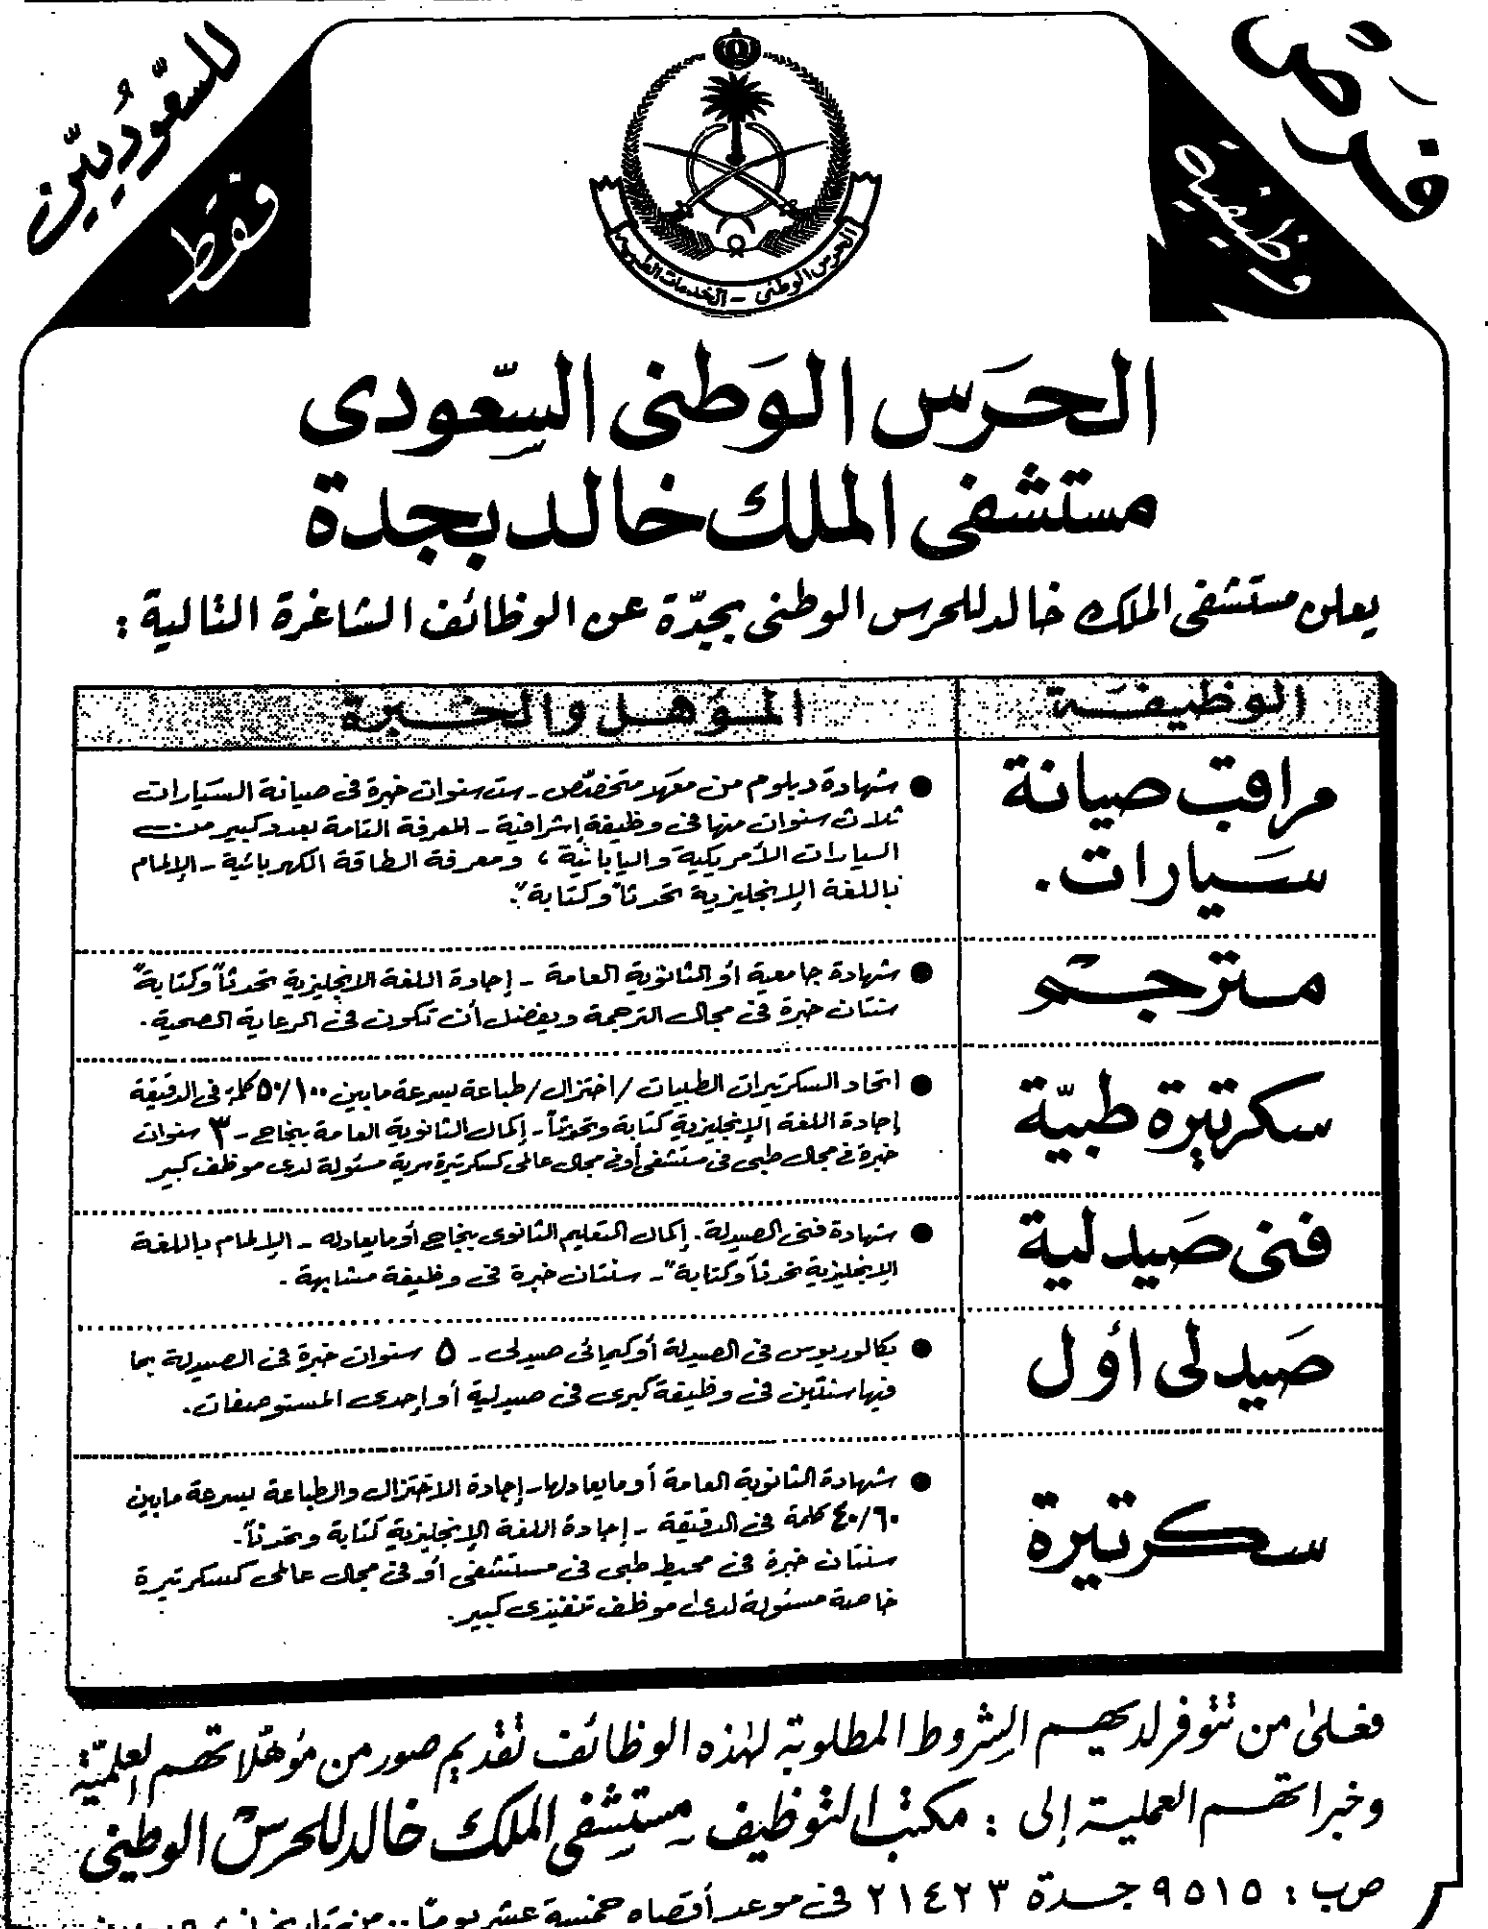 فرص
وظيفية
للسعوديّين
فقط
الحرس الوطني - الخدمات الطبية
الحرس الوطنى السعودى
مستشفى الملك خالد بجدة
يعلن مستشفى الملك خالد للحرس الوطنى بجدّة عن الوظائف الشاغرة التالية :
الوظيفة
المؤهل والخبرة
مراقب صيانة
سيارات.
● شهادة دبلوم من معهد متخصّص - ست سنوات خبرة فى صيانة السيارات
ثلاث سنوات منها فى وظيفة إشرافية - المعرفة التامة بعدد كبير من
السيارات الأمريكية واليابانية ، ومعرفة الطاقة الكهربائية - الإلمام
باللغة الإنجليزية تحدثاً وكتابة".
مترجم
● شهادة جامعية أو الثانوية العامة - إجادة اللغة الانجليزية تحدثاً وكتابة"
سنتان خبرة فى مجال الترجمة ويفضل أن تكون فى الرعاية الصحية.
سكرتيرة طبيّة
● اتحاد السكرتيرات الطبيات /اختزال/طباعة بسرعة مابين ٥٠/١٠٠ كلمة فى الدقيقة
إجادة اللغة الإنجليزية كتابة وتحدثاً - إكمال الثانوية العامة بنجاح - ٣ سنوات
خبرة فى مجال طبى فى مستشفى أو فى مجال عالمى كسكرتيرة سرية مسئولة لدى موظف كبير
فنى صيدلية
● شهادة فنى الصيدلة. إكمال التعليم الثانوى بنجاح أو مايعادله - الإلمام باللغة
الإنجليزية تحدثاً وكتابة" - سنتان خبرة فى وظيفة مشابهة .
صيدلى أول
● بكالوريوس فى الصيدلة أو كيميائى صيدلى - ٥ سنوات خبرة فى الصيدلة بما
فيها سنتين فى وظيفة كبرى فى صيدلية أو إحدى المستوصفات.
سكرتيرة
● شهادة الثانوية العامة أو مايعادلها - إجادة الاختزال والطباعة بسرعة مابين
٤٠/٦٠ كلمة فى الدقيقة - إجادة اللغة الإنجليزية كتابة وتحدثاً.
سنتان خبرة فى محيط طبى فى مستشفى أو فى مجال عالمى كسكرتيرة
خاصة مسئولة لدى موظف تنفيذى كبير.
فعلى من تتوفر لديهم الشروط المطلوبة لهذه الوظائف تقديم صور من مؤهلاتهم العلميّة
وخبراتهم العملية إلى : مكتب التوظيف - مستشفى الملك خالد للحرس الوطني
ص ب : ٩٥١٥ جدة ٢١٤٢٣ فى موعد أقصاه خمسة عشر يومًا .. من تاريخ